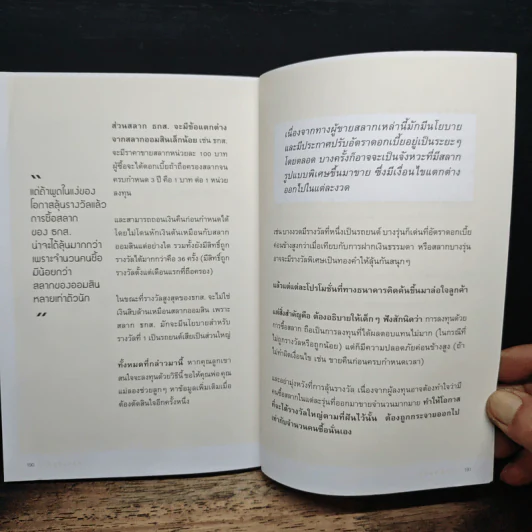 "
แต่ถ้าพูดในแง่ของ
โอกาสลุ้นรางวัลแล้ว
การซื้อสลาก
ของ ธกส.
น่าจะได้ลุ้นมากกว่า
เพราะจำนวนคนซื้อ
มีน้อยกว่า
สลากของออมสิน
หลายเท่าตัวนัก
"
ส่วนสลาก ธกส. จะมีข้อแตกต่าง
จากสลากออมสินเล็กน้อย เช่น ธกส.
จะมีราคาขายสลากหน่วยละ 100 บาท
ผู้ซื้อจะได้ดอกเบี้ยถ้าถือครองสลากจน
ครบกำหนด 3 ปี คือ 1 บาท ต่อ 1 หน่วย
ลงทุน
และสามารถถอนเงินคืนก่อนกำหนดได้
โดยไม่โดนหักเงินต้นเหมือนกับสลาก
ออมสินแต่อย่างใด รวมทั้งยังมีสิทธิ์ถูก
รางวัลได้มากกว่าคือ 36 ครั้ง (มีสิทธิ์ถูก
รางวัลตั้งแต่เดือนแรกที่ถือครอง)
ในขณะที่รางวัลสูงสุดของธกส. จะไม่ใช่
เงินสิบล้านเหมือนสลากออมสิน เพราะ
สลาก ธกส. มักจะมีนโยบายสำหรับ
รางวัลที่ 1 เป็นรถยนต์เสียเป็นส่วนใหญ่
ทั้งหมดที่กล่าวมานี้ หากคุณลูกเขา
สนใจจะลงทุนด้วยวิธีนี้ ขอให้คุณพ่อคุณ
แม่ลองช่วยลูกๆ หาข้อมูลเพิ่มเติมเมื่อ
ต้องตัดสินใจอีกครั้งหนึ่ง
190
เนื่องจากทางผู้ขายสลากเหล่านี้มักมีนโยบาย
และมีประกาศปรับอัตราดอกเบี้ยอยู่เป็นระยะๆ
โดยตลอด บางครั้งก็อาจจะเป็นจังหวะที่มีสลาก
รูปแบบพิเศษขึ้นมาขาย ซึ่งมีเงื่อนไขแตกต่าง
ออกไปในแต่ละงวด
เช่น บางงวดมีรางวัลที่หนึ่งเป็นรถยนต์ บางรุ่นก็เด่นที่อัตราดอกเบี้ย
ค่อนข้างสูงกว่าเมื่อเทียบกับการฝากเงินธรรมดา หรือสลากบางรุ่น
อาจจะมีรางวัลพิเศษเป็นทองคำให้ลุ้นกันสนุกๆ
แล้วแต่แต่ละโปรโมชั่นที่ทางธนาคารคิดค้นขึ้นมาล่อใจลูกค้า
แต่สิ่งสำคัญคือ ต้องอธิบายให้เด็กๆ ฟังสักนิดว่า การลงทุนด้วย
การซื้อสลาก ถือเป็นการลงทุนที่ได้ผลตอบแทนไม่มาก (ในกรณีที่
ไม่ถูกรางวัลหรือถูกน้อย) แต่ก็มีความปลอดภัยค่อนข้างสูง (ถ้า
ไม่ทำผิดเงื่อนไข เช่น ขายคืนก่อนครบกำหนดเวลา)
และอย่ามุ่งหวังที่การลุ้นรางวัล เนื่องจากผู้ลงทุนอาจต้องทำใจว่ามี
คนซื้อสลากในแต่ละรุ่นที่ออกมาขายจำนวนมากมาย ทำให้โอกาส
ที่จะได้รางวัลใหญ่ตามที่ฝันไว้นั้น ต้องถูกกระจายออกไป
เท่ากับจำนวนคนซื้อนั่นเอง
191